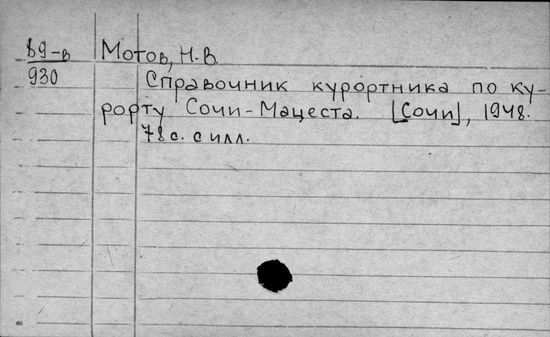 89-в
930
Мотов, Н.В.
Справочник курортника по ку-
рорту Сочи-Мацеста. [Сочи], 1948.
78 с. с илл.